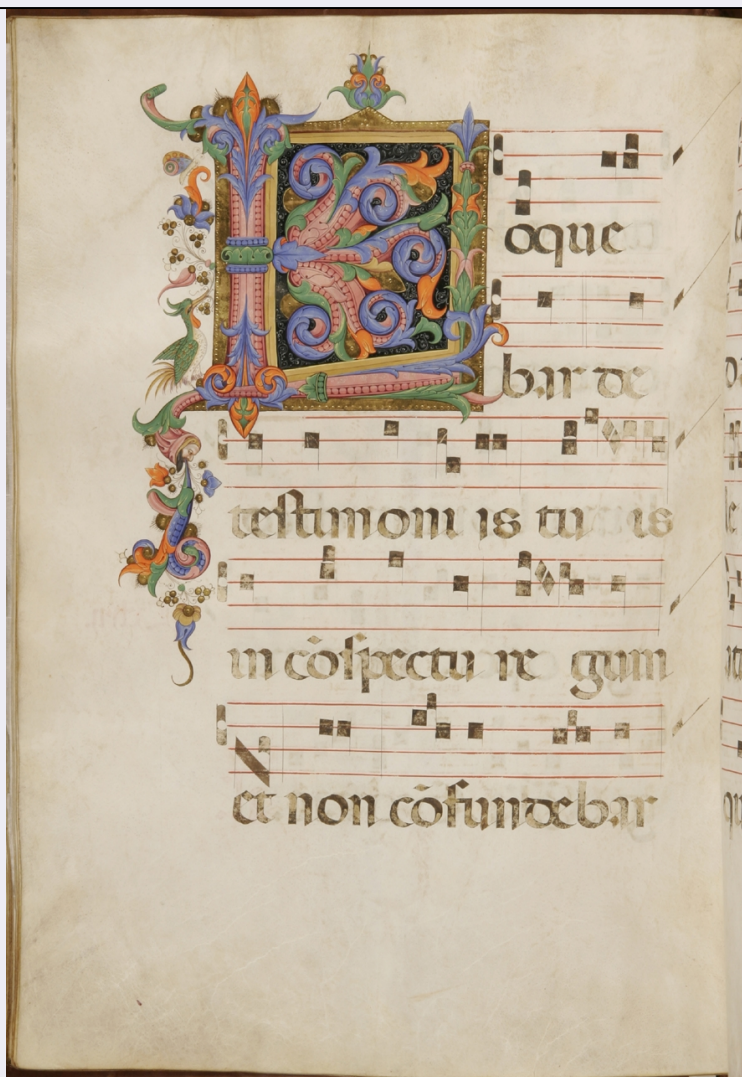 Loque
bar de
testimoni is tu is
in cōspectu re gum
et non cōfundebar